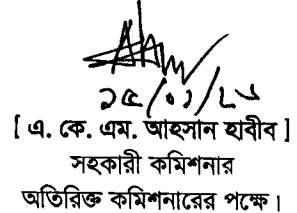 [ এ. কে. এম. আহসান হাবীব ]
সহকারী কমিশনার
অতিরিক্ত কমিশনারের পক্ষে।